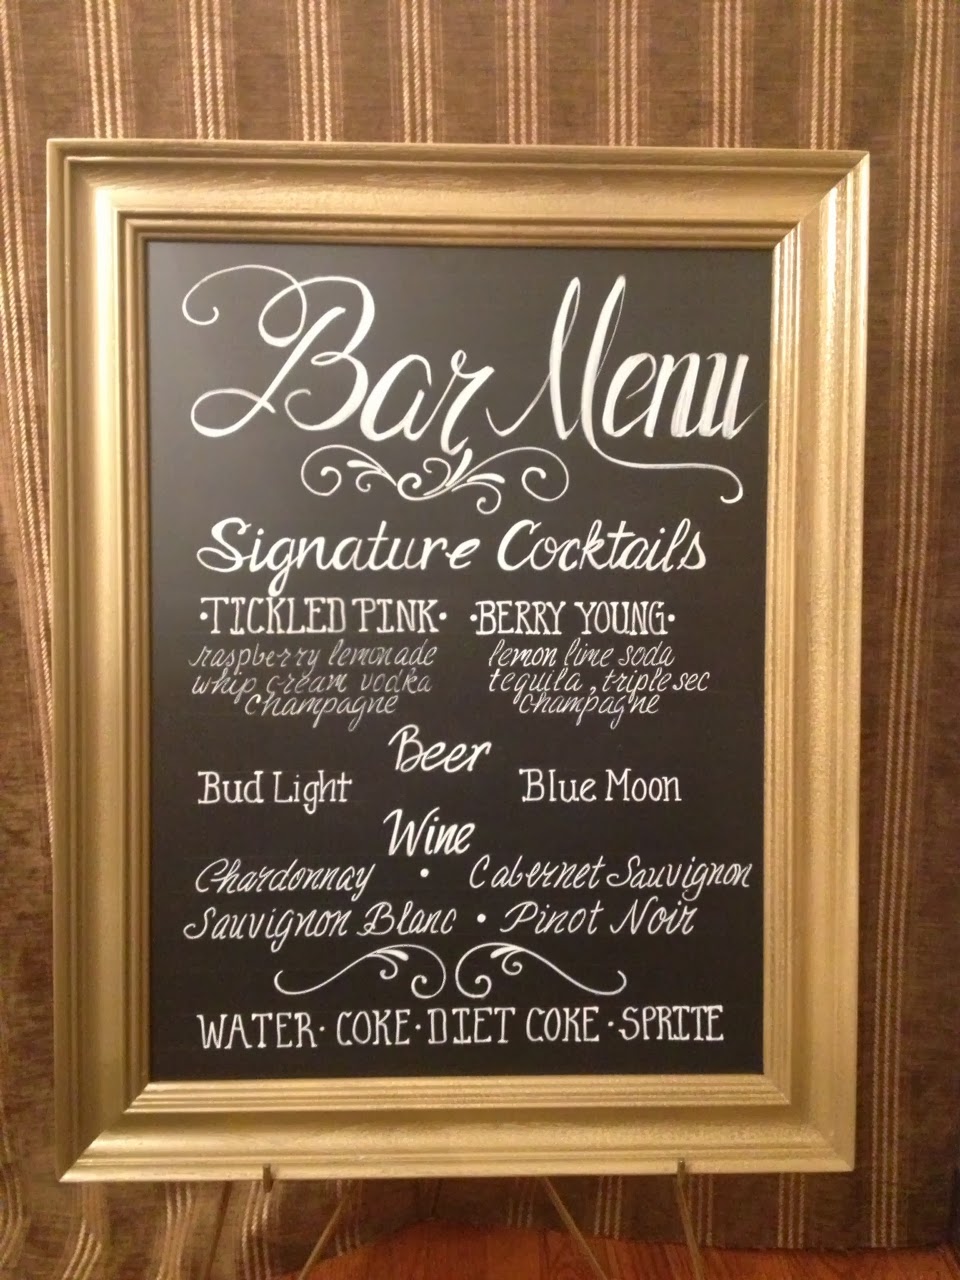 Bar Menu
Signature Cocktails
·TICKLED PINK· ·BERRY YOUNG·
raspberry lemonade lemon lime soda
whip cream vodka tequila, triple sec
champagne champagne
Beer
Bud Light Blue Moon
Wine
Chardonnay · Cabernet Sauvignon
Sauvignon Blanc · Pinot Noir
WATER · COKE · DIET COKE · SPRITE